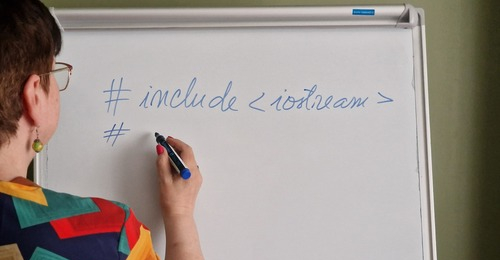 # include <iostream>
#